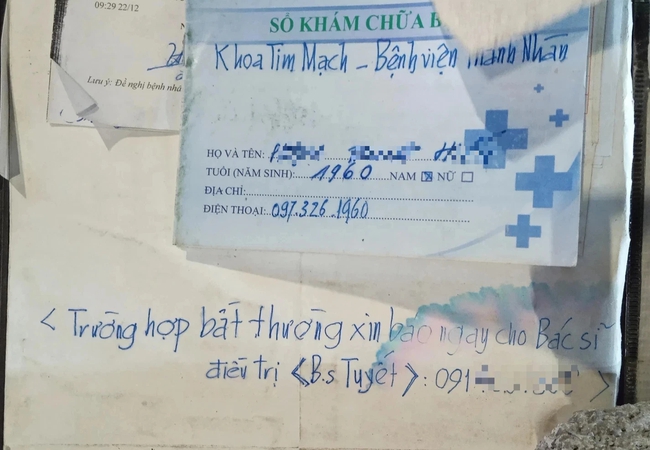 09:29 22/12
Lưu ý: Đề nghị bệnh nhâ
SỔ KHÁM CHỮA B
Khoa Tim Mạch - Bệnh viện Thanh Nhàn
HỌ VÀ TÊN:
TUỔI (NĂM SINH): 1960 NAM NỮ
ĐỊA CHỈ:
ĐIỆN THOẠI: 097.326.1960
< Trường hợp bất thường xin báo ngay cho Bác sĩ
điều trị <B.s Tuyết>: 091 >